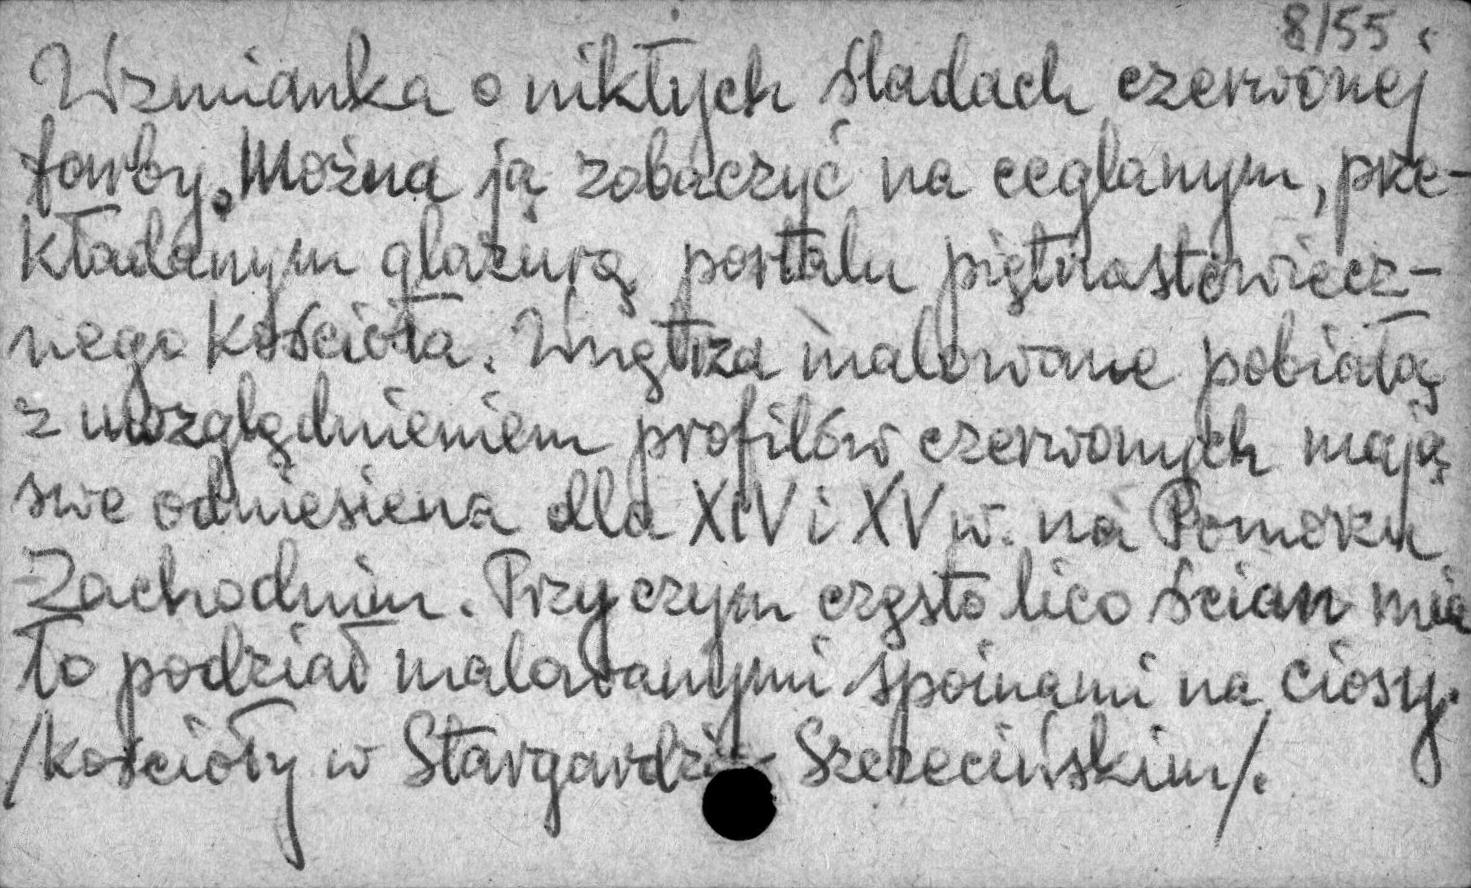 8/55
Wzmianka o nikłych śladach czerwonej
farby. Można ją zobaczyć na ceglanym, prze-
kładanym glazurą portalu piętnastowiecz-
nego kościoła. Wnętrza malowane pobiałą
z uwzględnieniem profilów czerwonych mają
swe odniesiena dla XIV i XV w. na Pomorzu
Zachodnim. Przy czym często lico ścian mia
ło podział malowanymi spoinami na ciosy.
/kościoły w Stargardzie Szczecińskim/.